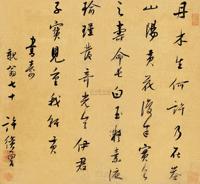 丹木生何許乃在峚
山陽黃花復朱實食
之壽命長白玉凝素液
瑾瑜發奇光豈伊君
子寶見重我軒黃
書壽
翁七十
許